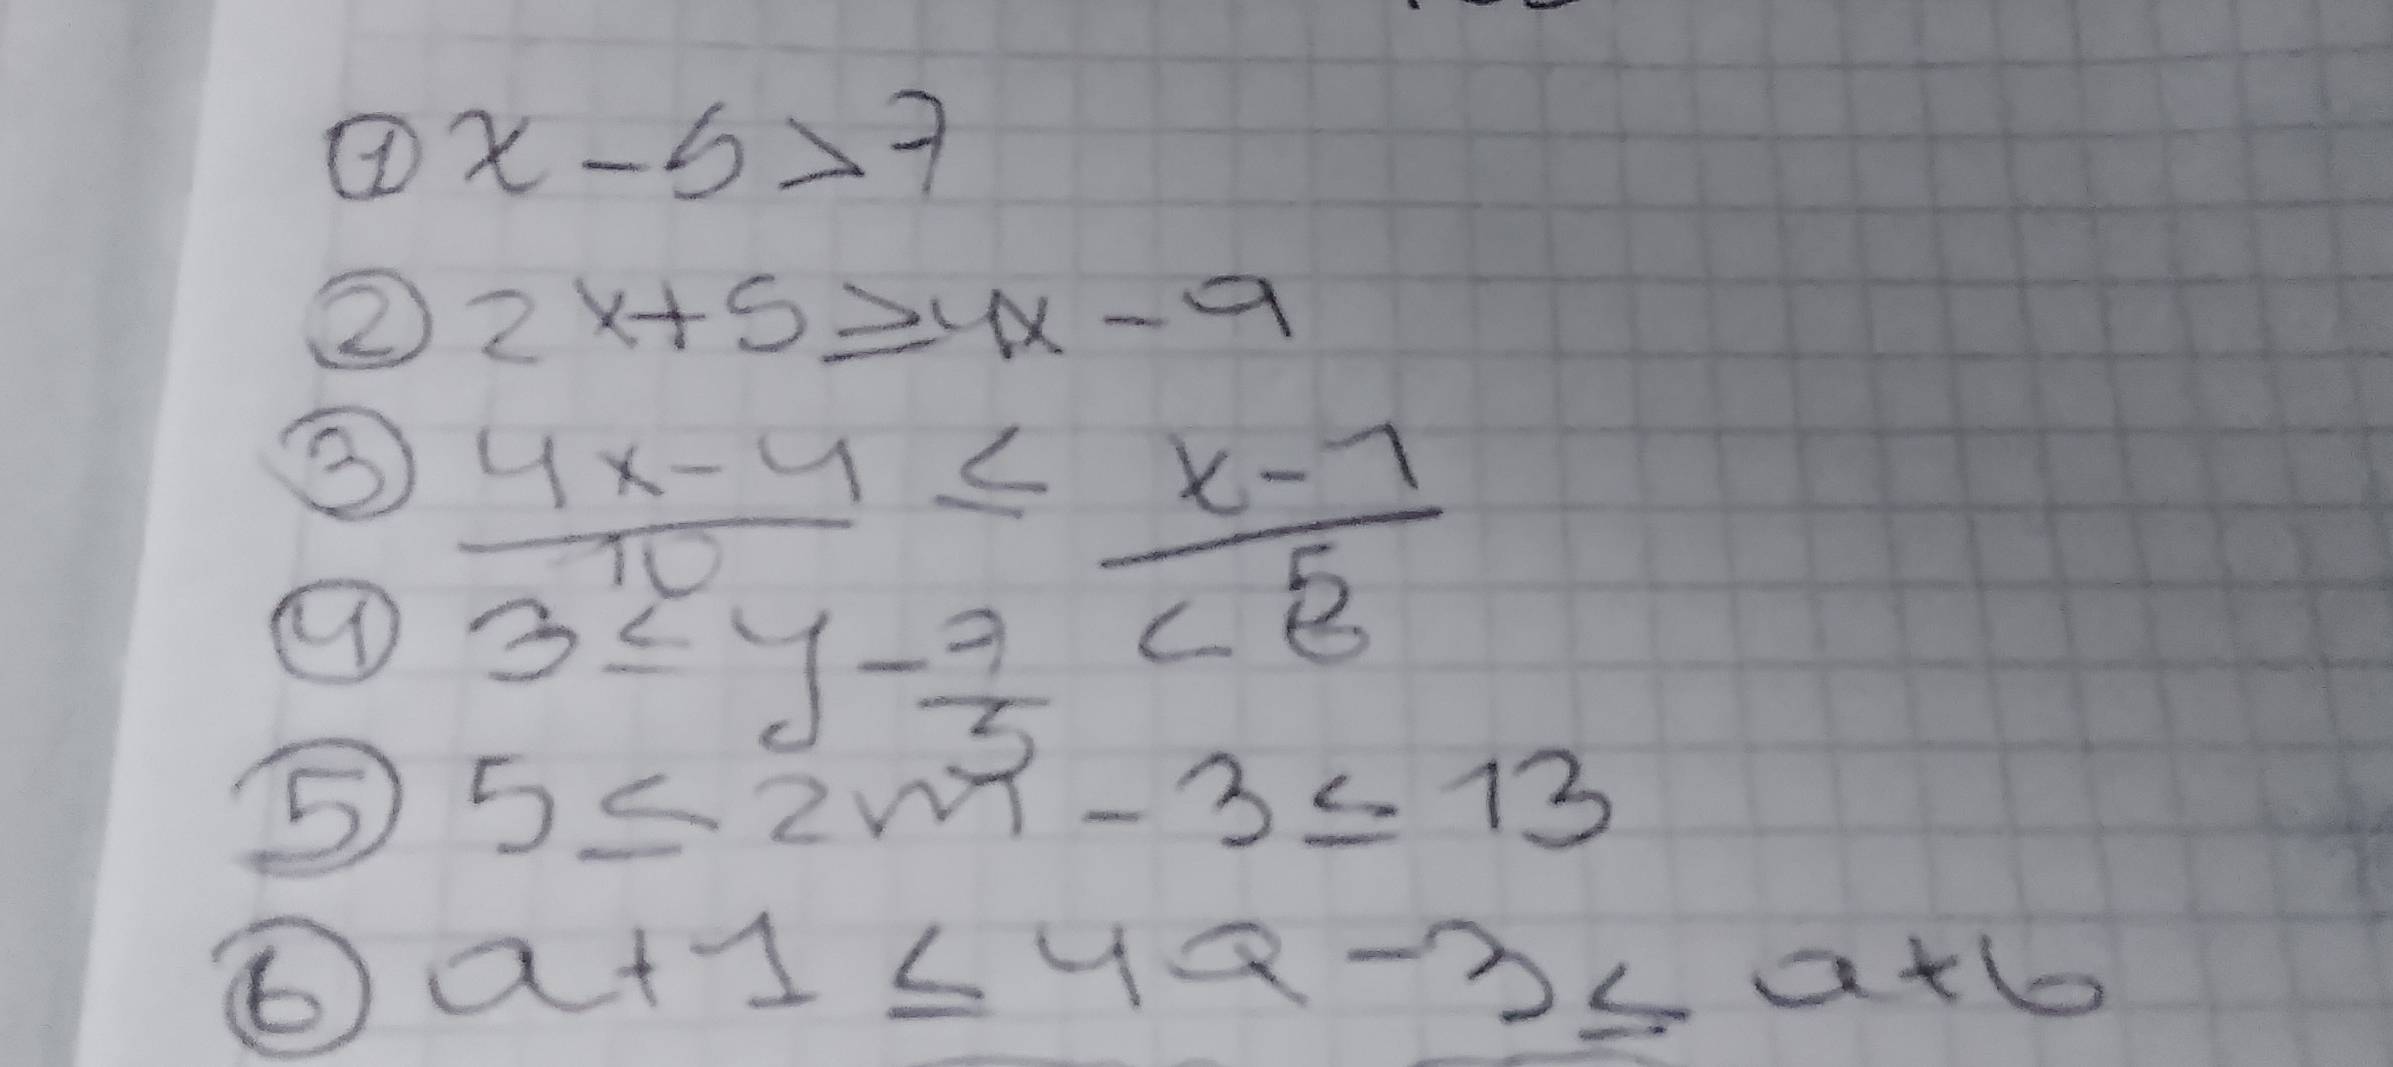 ① x - 5 > 7
② 2x + 5 ≥ 4x - 9
③ (4x - 4)/10 ≤ (x - 1)/5
④ 3 ≤ y - 7/3 <
⑤ 5 ≤ 2m - 3 ≤ 13
⑥ a + 1 ≤ 4a - 3 ≤ a + 6